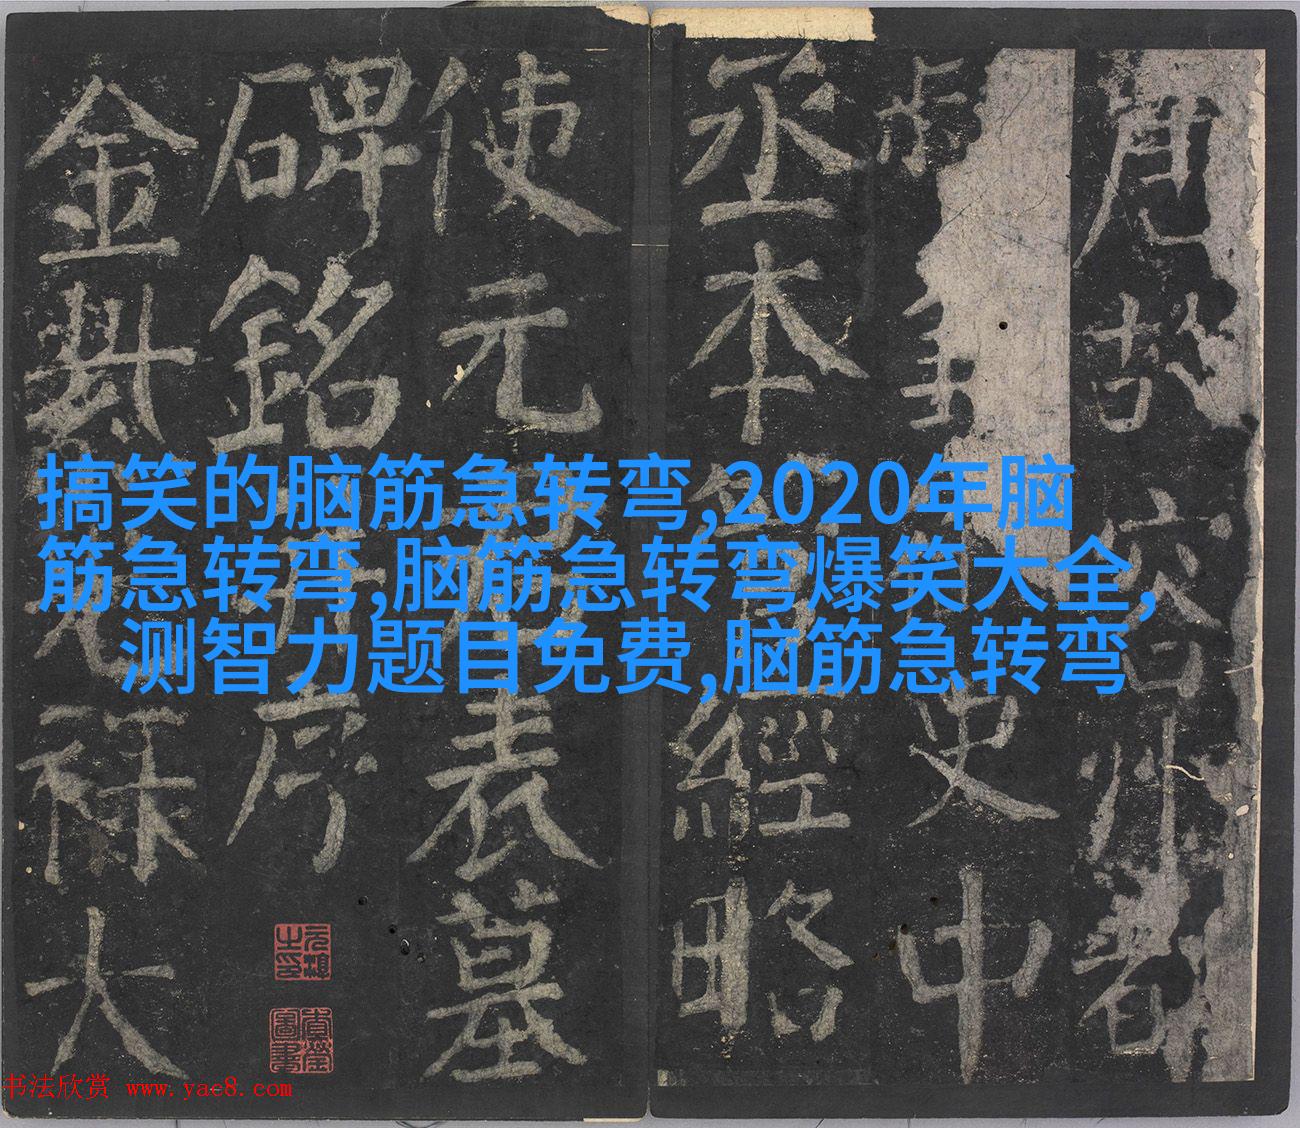 唐故容州都
史中
丞本經略
使元表墓
碑銘序
金光祿大
搞笑的脑筋急转弯,2020年脑
筋急转弯,脑筋急转弯爆笑大全,
测智力题目免费,脑筋急转弯
书法欣赏 www.yac8.com